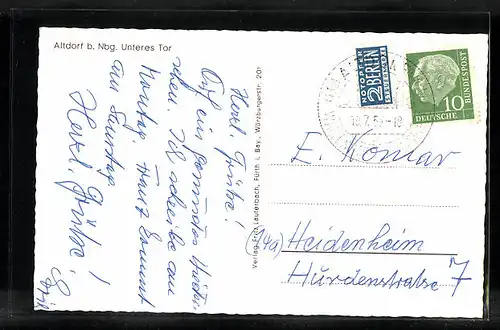 Altdorf b. Nbg. Unteres Tor
Herzl. Grüße!
Auf ein gesundes Wieder-
sehen. Ich schreibe am
Montag. Franz kommt
am Sonntag.
Herzl. Grüße!
Verlag Fritz Lauterbach, Fürth i. Bay., Würzburgerstr. 201
NOTOPFER
2 BERLIN
STEUERMARKE
10
DEUTSCHE
BUNDESPOST
E. Komar
(14a) Heidenheim
Hürdenstraße 7